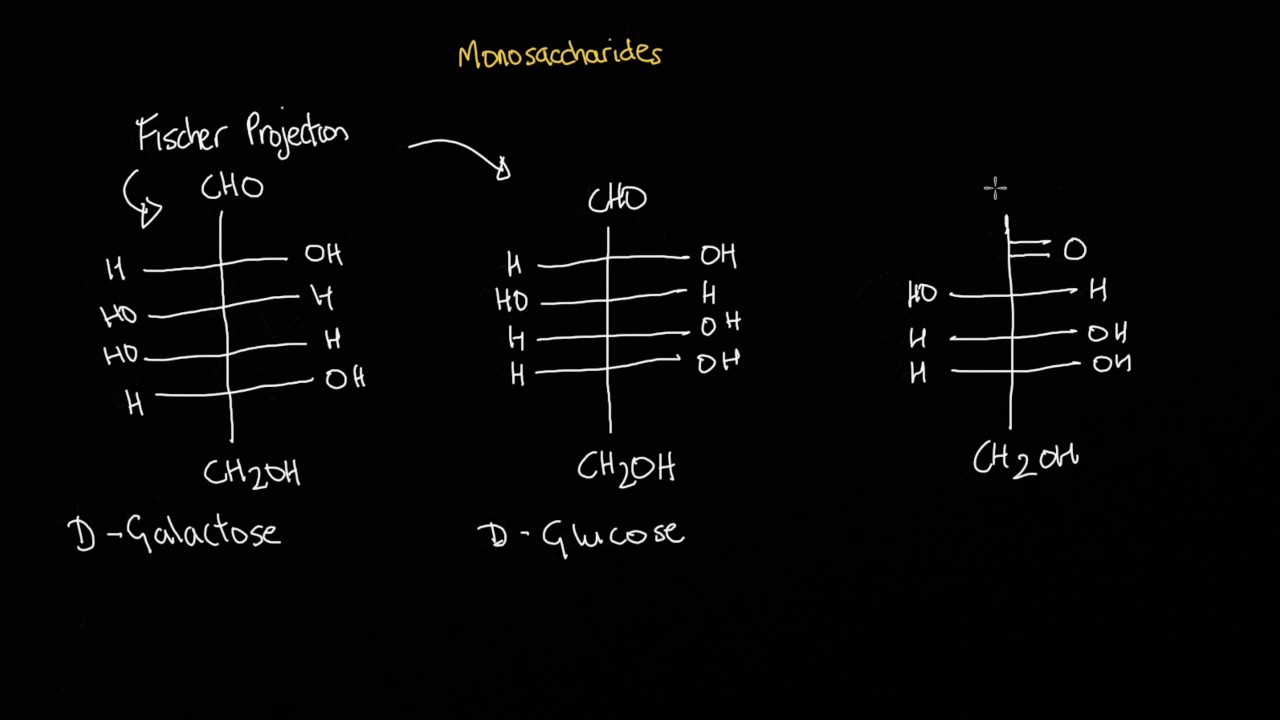 Monosaccharides
Fischer Projection
CHO
H OH
HO H
HO H
H OH
CH2OH
D-Galactose
CHO
H OH
HO H
H OH
H OH
CH2OH
D-Glucose
O
HO H
H OH
H OH
CH2OH